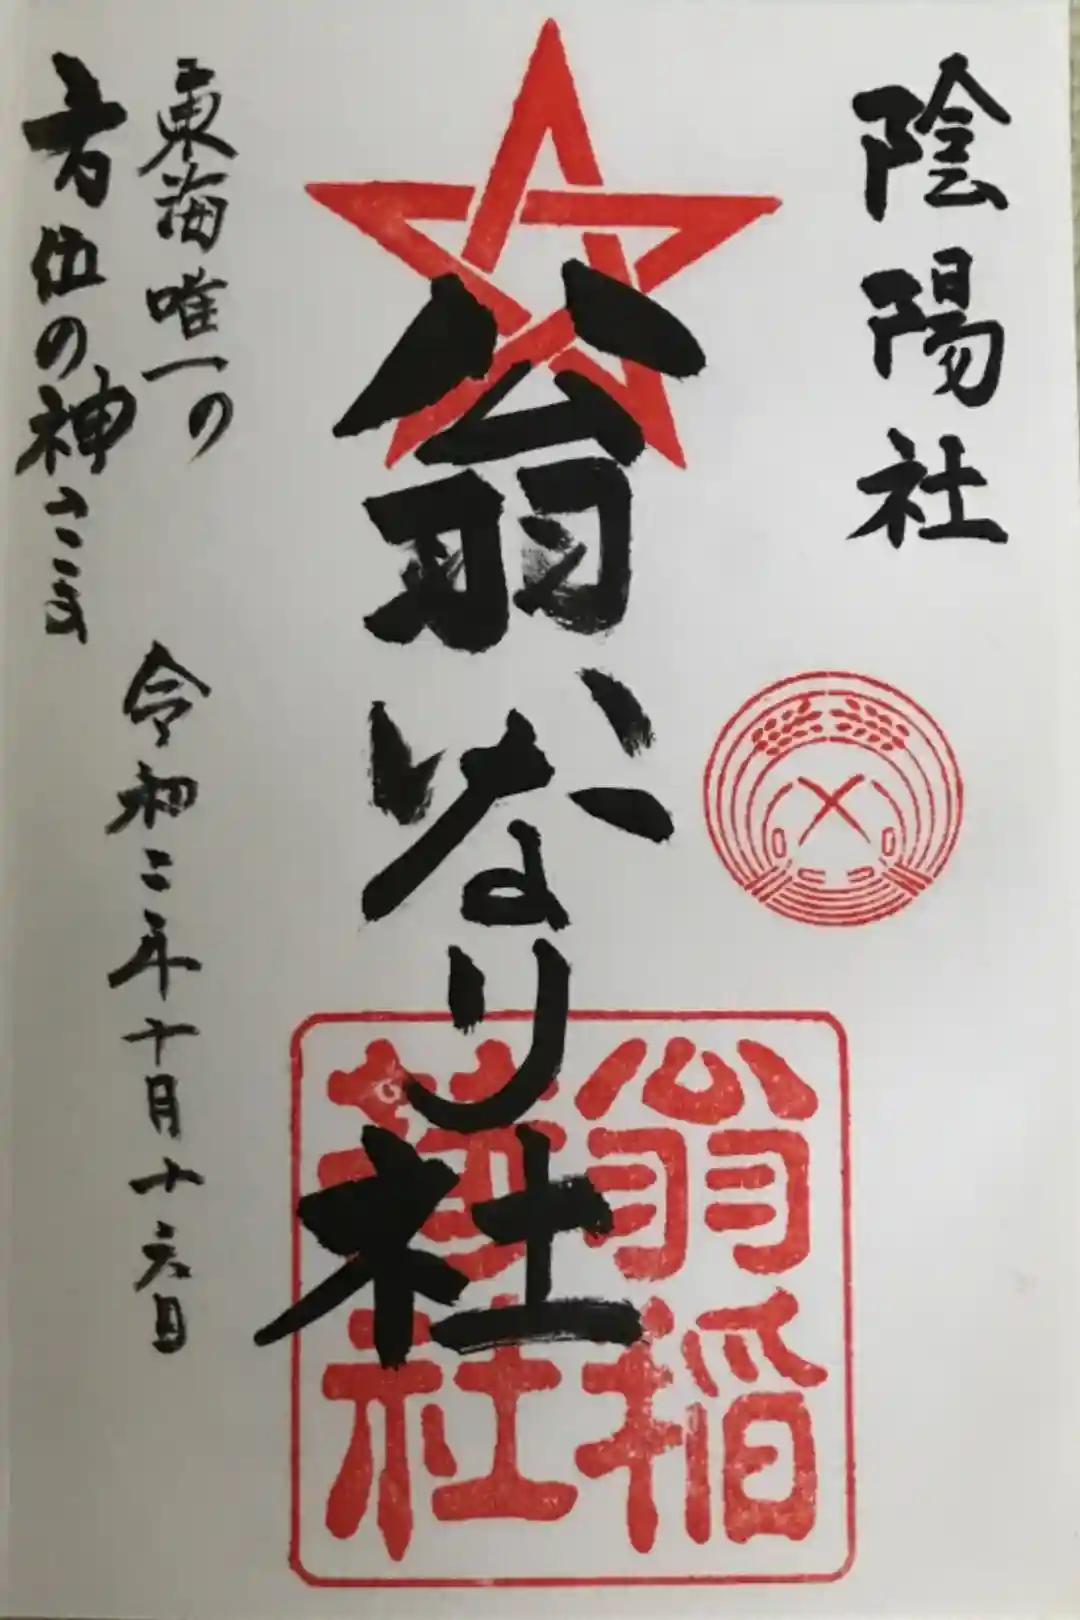 陰陽社
翁いなり社
翁稲
荷社
東海唯一の
方位の神さま
令和二年十月十六日